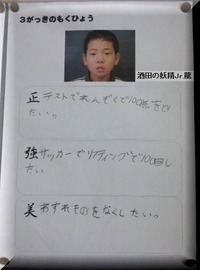 3がっきのもくひょう
酒田の妖精Jr.龍
正 テストでれんぞくで100点をとり
たい。
強 サッカーでリフティングで100回し
たい
美 わすれものをなくしたい。